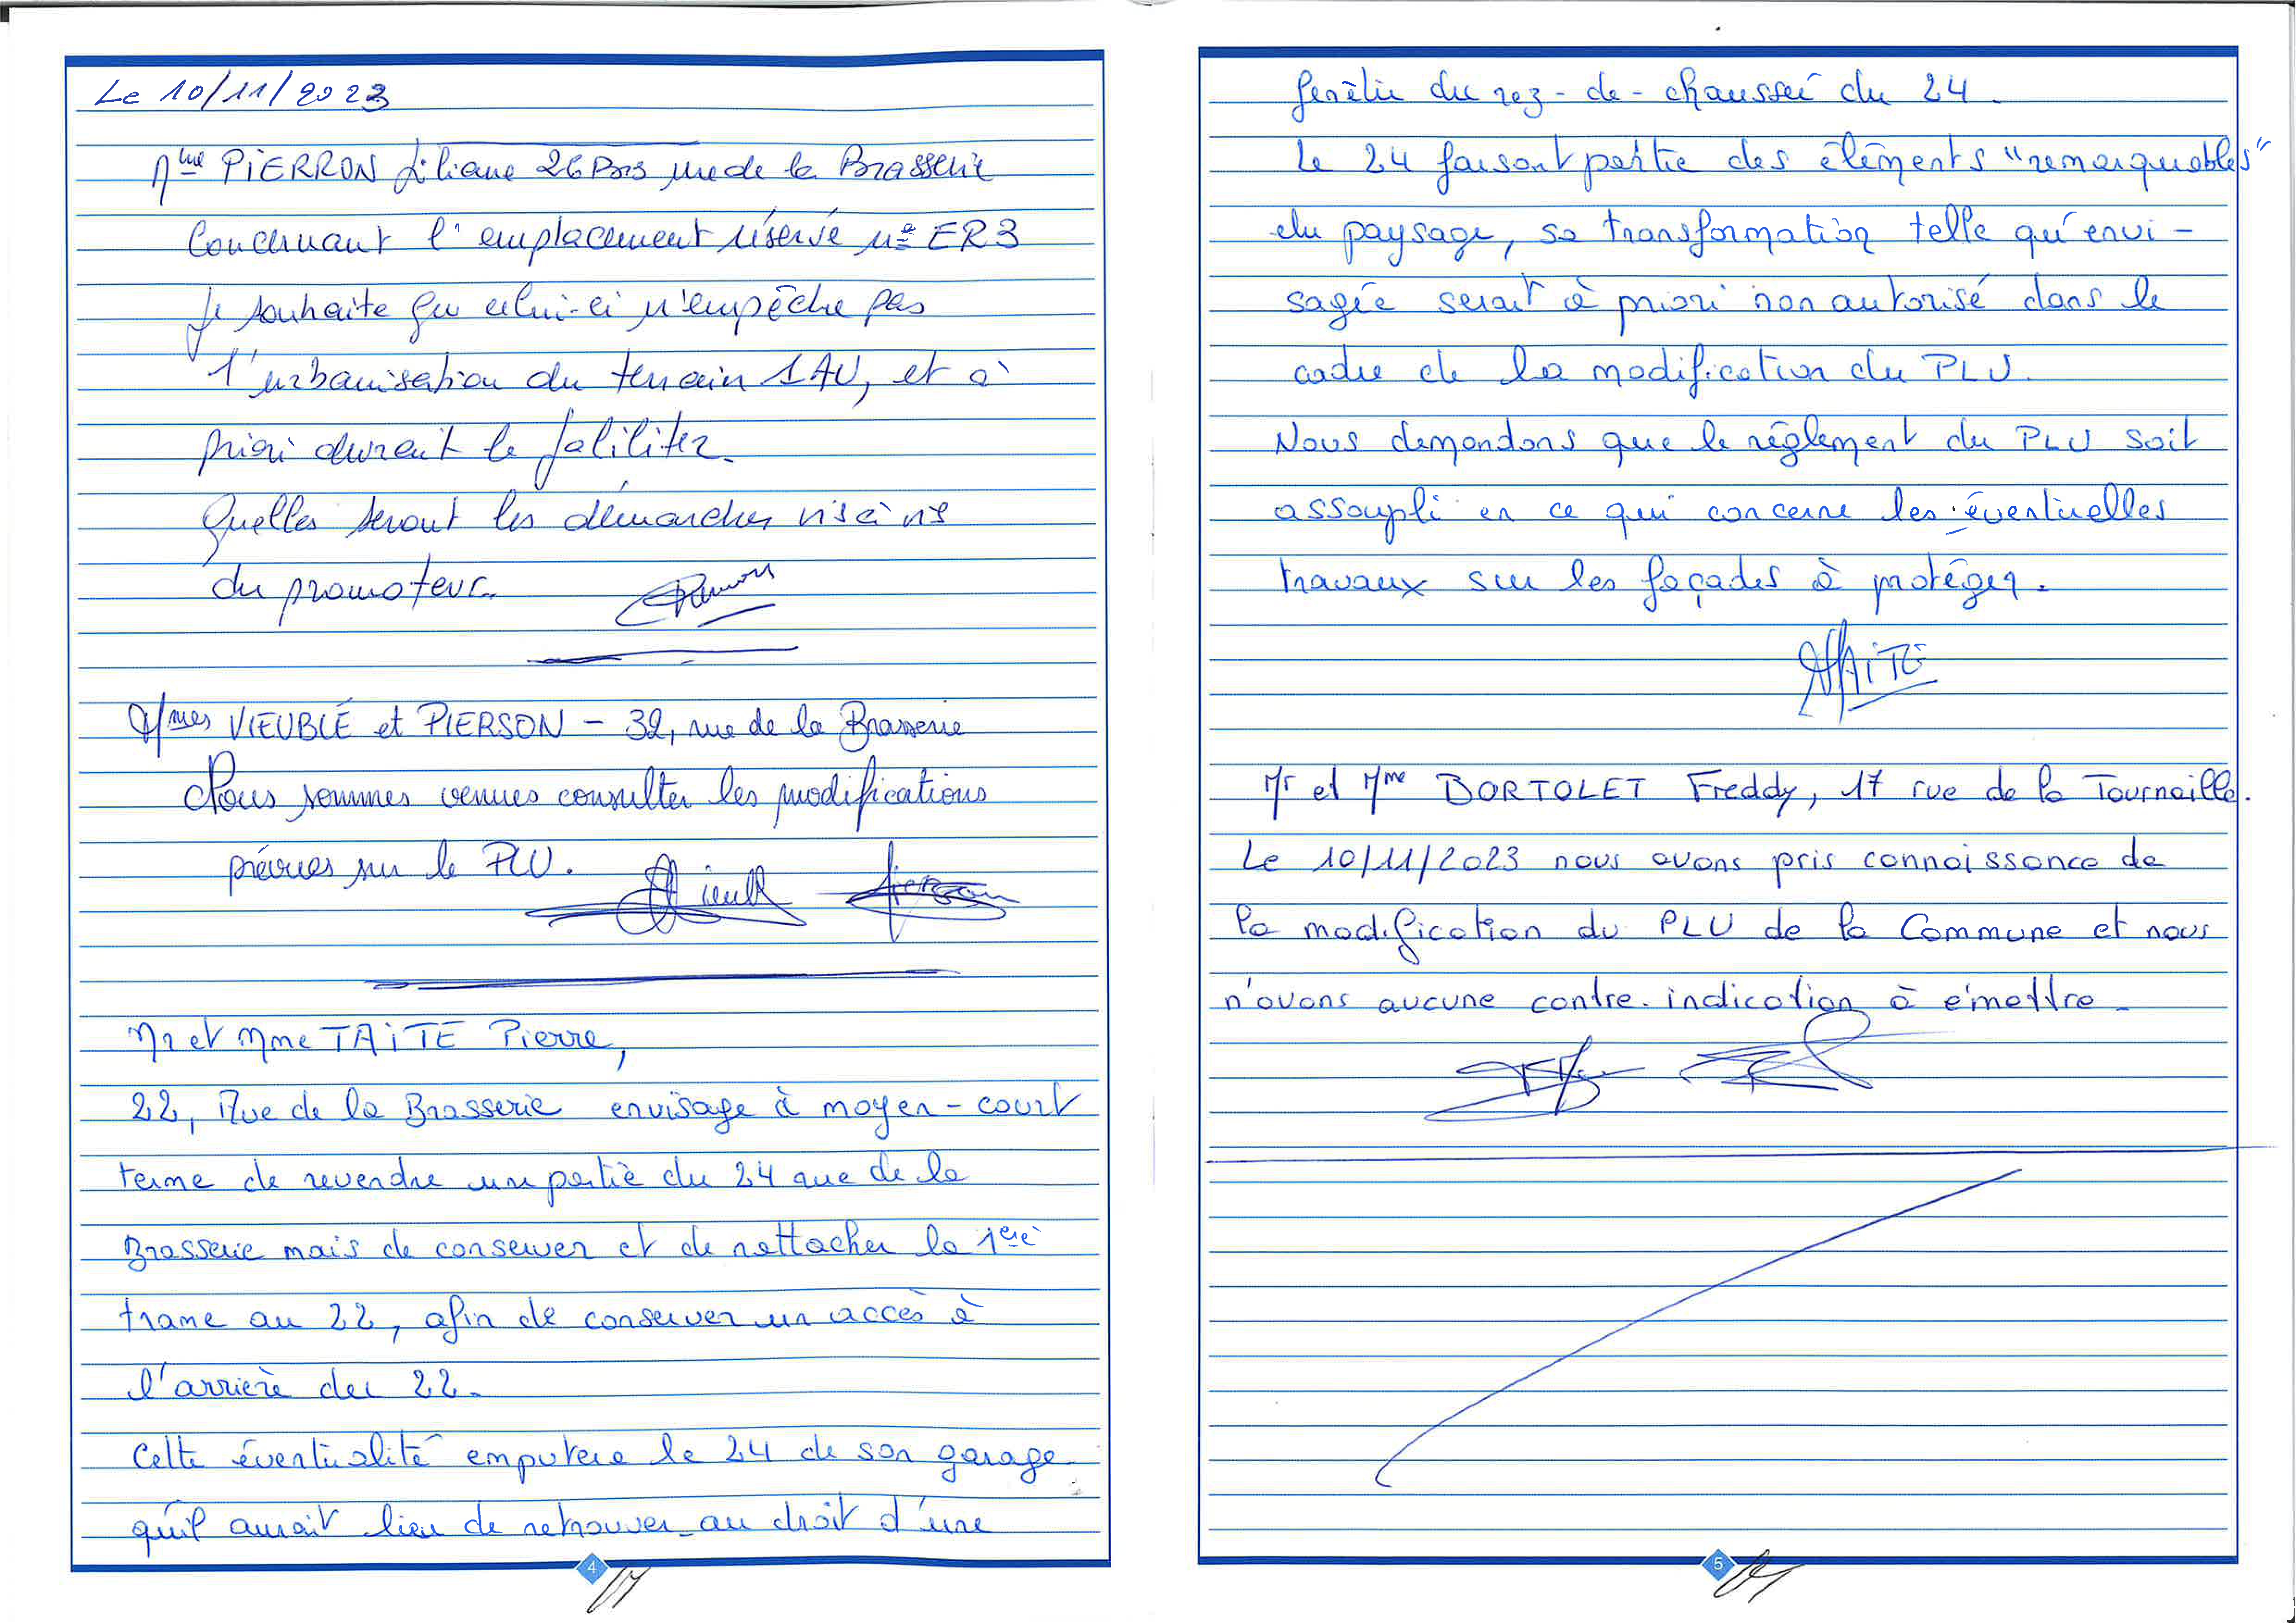 Le 10/11/2023
Mme PiERRON Liliane 26 Bis rue de la Brasserie
Concernant l'emplacement réservé n° ER3
Je souhaite que celui-ci n'empêche pas
l'urbanisation du terrain 1AU, et à
priori devrait le faliliter.
Quelles seront les démarches vis à vis
du promoteur.
Mmes VIEUBLÉ et PIERSON - 32, rue de la Brasserie
Nous sommes venues consulter les modifications
prévues sur le PLU.
Mr et Mme TAiTE Pierre,
22, Rue de la Brasserie envisage à moyen - court
terme de revendre une partie du 24 rue de la
Brasserie mais de conserver et de rattacher la 1ere
trame au 22, afin de conserver un accès à
l'arrière du 22.
Cette éventualité amputera le 24 de son garage
qu'il aurait lieu de retrouver au droit d'une
4
fenêtre du rez-de-chaussée du 24.
Le 24 faisant partie des éléments "remarquables"
du paysage, sa transformation telle qu'envi-
sagée serait à priori non autorisé dans le
cadre de la modification du PLU.
Nous demandons que le règlement du PLU soit
assoupli en ce qui concerne les éventuelles
travaux sur les façades à protéger.
TAiTE
Mr et Mme BORTOLET Freddy, 17 rue de la Tournaille.
Le 10/11/2023 nous avons pris connaissance de
la modification du PLU de la Commune et nous
n'avons aucune contre-indication à émettre.
5